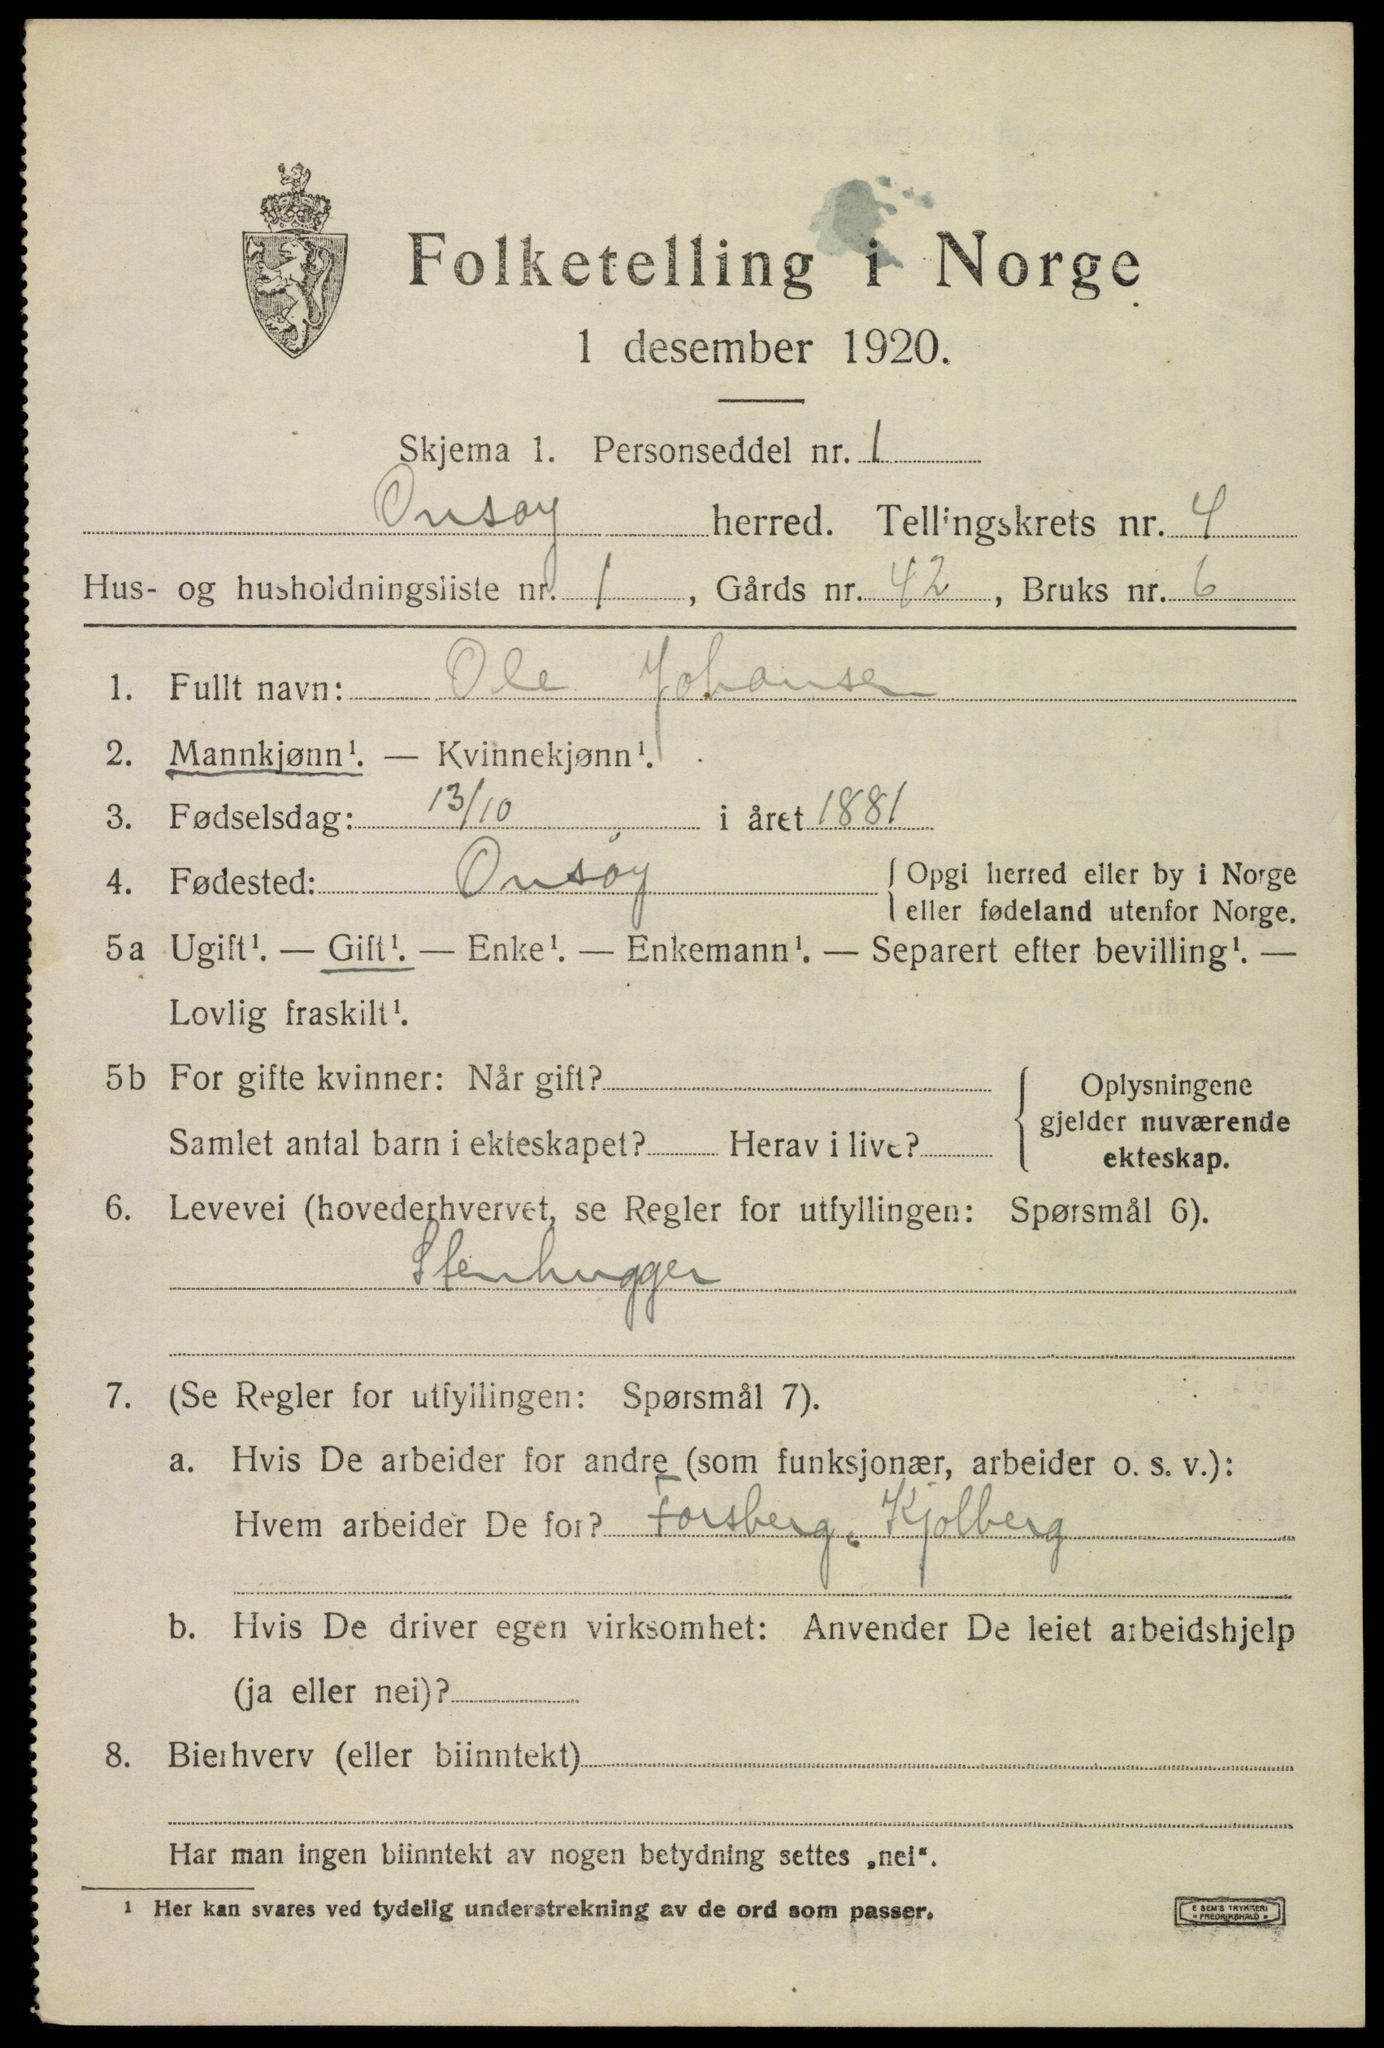 Folketelling i Norge
1 desember 1920.
Skjema 1. Personseddel nr. 1
Onsøy herred. Tellingskrets nr. 4
Hus- og husholdningsliste nr. 1, Gårds nr. 42, Bruks nr. 6
1. Fullt navn: Ole Johansen
2. Mannkjønn¹. — Kvinnekjønn¹.
3. Fødselsdag: 13/10 i året 1881
4. Fødested: Onsøy { Opgi herred eller by i Norge
eller fødeland utenfor Norge.
5a Ugift¹. — Gift¹. — Enke¹. — Enkemann¹. — Separert efter bevilling¹. —
Lovlig fraskilt¹.
5b For gifte kvinner: Når gift? { Oplysningene
gjelder nuværende
Samlet antal barn i ekteskapet? Herav i live? ekteskap.
6. Levevei (hovederhvervet, se Regler for utfyllingen: Spørsmål 6).
Stenhugger
7. (Se Regler for utfyllingen: Spørsmål 7).
a. Hvis De arbeider for andre (som funksjonær, arbeider o. s. v.):
Hvem arbeider De for? Forsberg, Kjølberg
b. Hvis De driver egen virksomhet: Anvender De leiet arbeidshjelp
(ja eller nei)?
8. Bierhverv (eller biinntekt)
Har man ingen biinntekt av nogen betydning settes „nei“.
¹ Her kan svares ved tydelig understrekning av de ord som passer.
E SEM'S TRYKKERI
FREDRIKSHALD